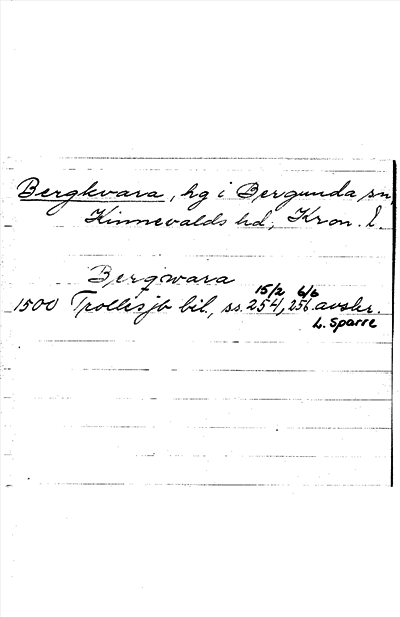 Bergkvara, hg i Bergunda sn,
Kinnevalds hd, Kron. l.
Bergqwara
15/2 6/6
1500 Trollesjö bil., ss. 254, 256. avskr.
L. Sparre